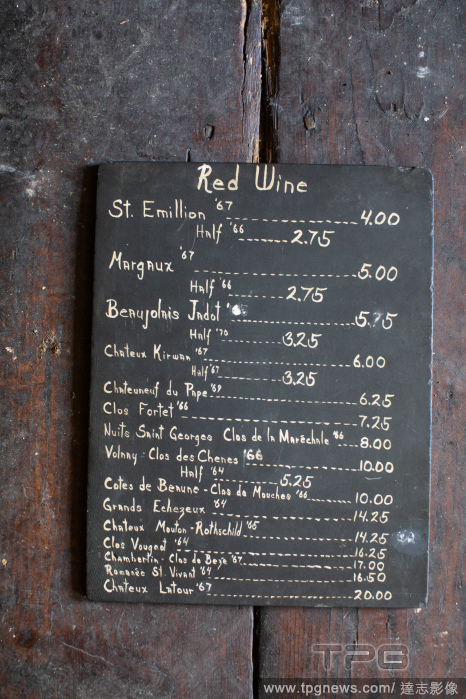 Red Wine
St. Emillion '67 4.00
Half '66 2.75
Margaux '67 5.00
Half '66 2.75
Beaujolais Jadot 5.75
Half '70 3.25
Chateux Kirwan '67 6.00
Half '67 3.25
Chateuneuf du Pape '69 6.25
Clos Fortet '66 7.25
Nuits Saint Georges Clos de la Maréchale '66 8.00
Volnay - Clos des Chenes '66 10.00
Half '64 5.25
Cotes de Beaune - Clos de Mouches '66 10.00
Grands Echezeux '64 14.25
Chateux Mouton-Rothschild '65 14.25
Clos Vougeot '64 16.25
Chambertin - Clos de Beze '67 17.00
Romanée St. Vivant '64 16.50
Chateux Latour '67 20.00
TPG
www.tpgnews.com/ 達志影像